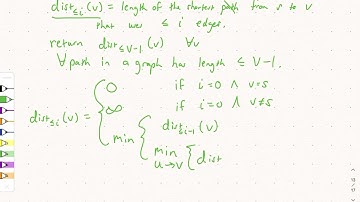 dist≤i(v) = length of the shortest path from s to v
that uses ≤ i edges.
return dist≤V-1(v) ∀v
∀ path in a graph has length ≤ V-1.
dist≤i(v) = { 0 if i=0 ∧ v=s
∞ if i=0 ∧ v≠s
min { dist≤i-1(v)
min u→v { dist